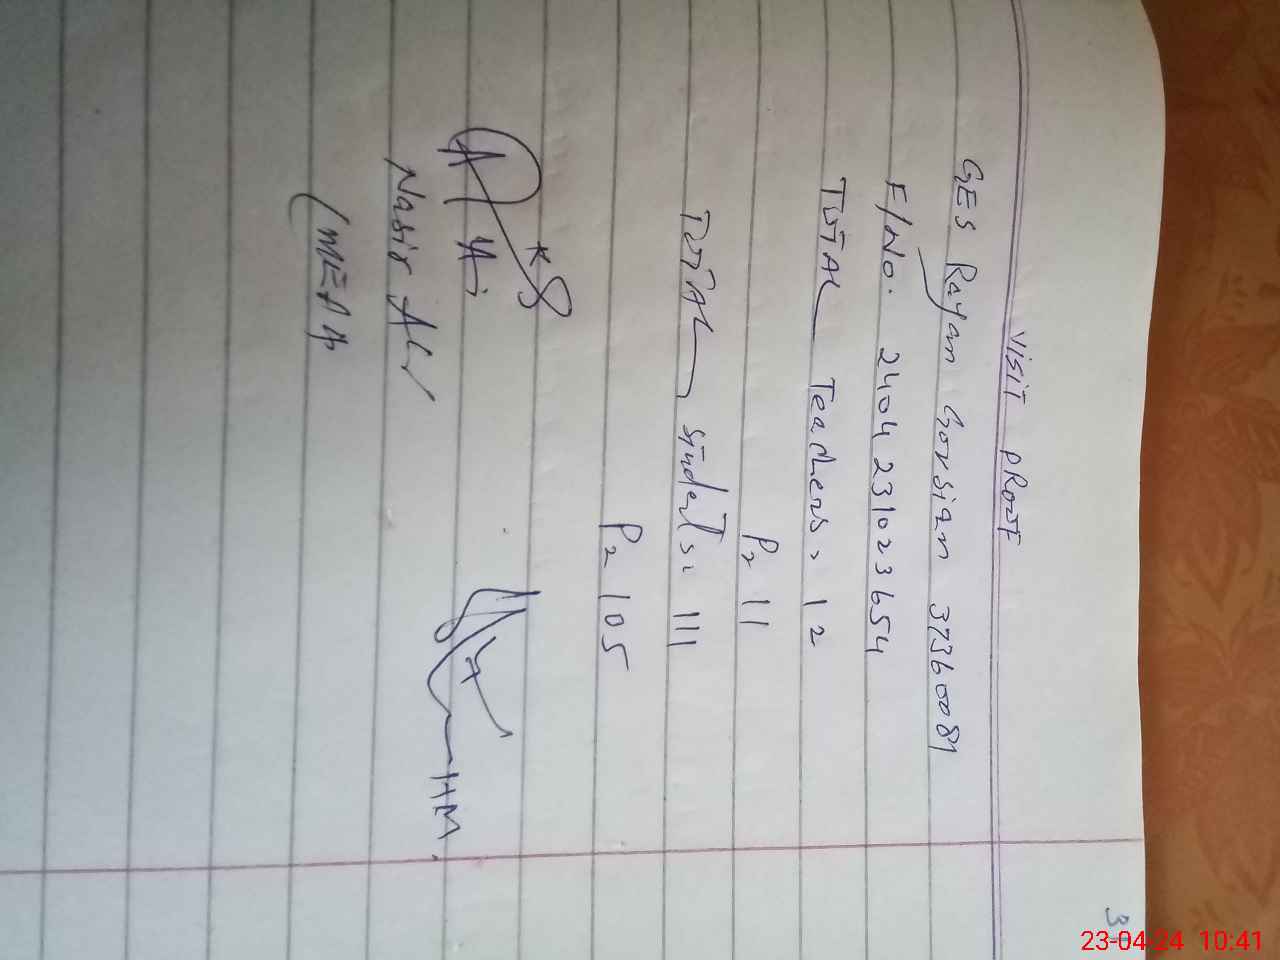 VISIT PROOF
GES Rayan Gorsian 37360081
F/No. 2404231023654
TOTAL Teachers, 12
P, 11
TOTAL students: 111
P, 105
HM
Nasir Ali
(MEA
23-04-24 10:41